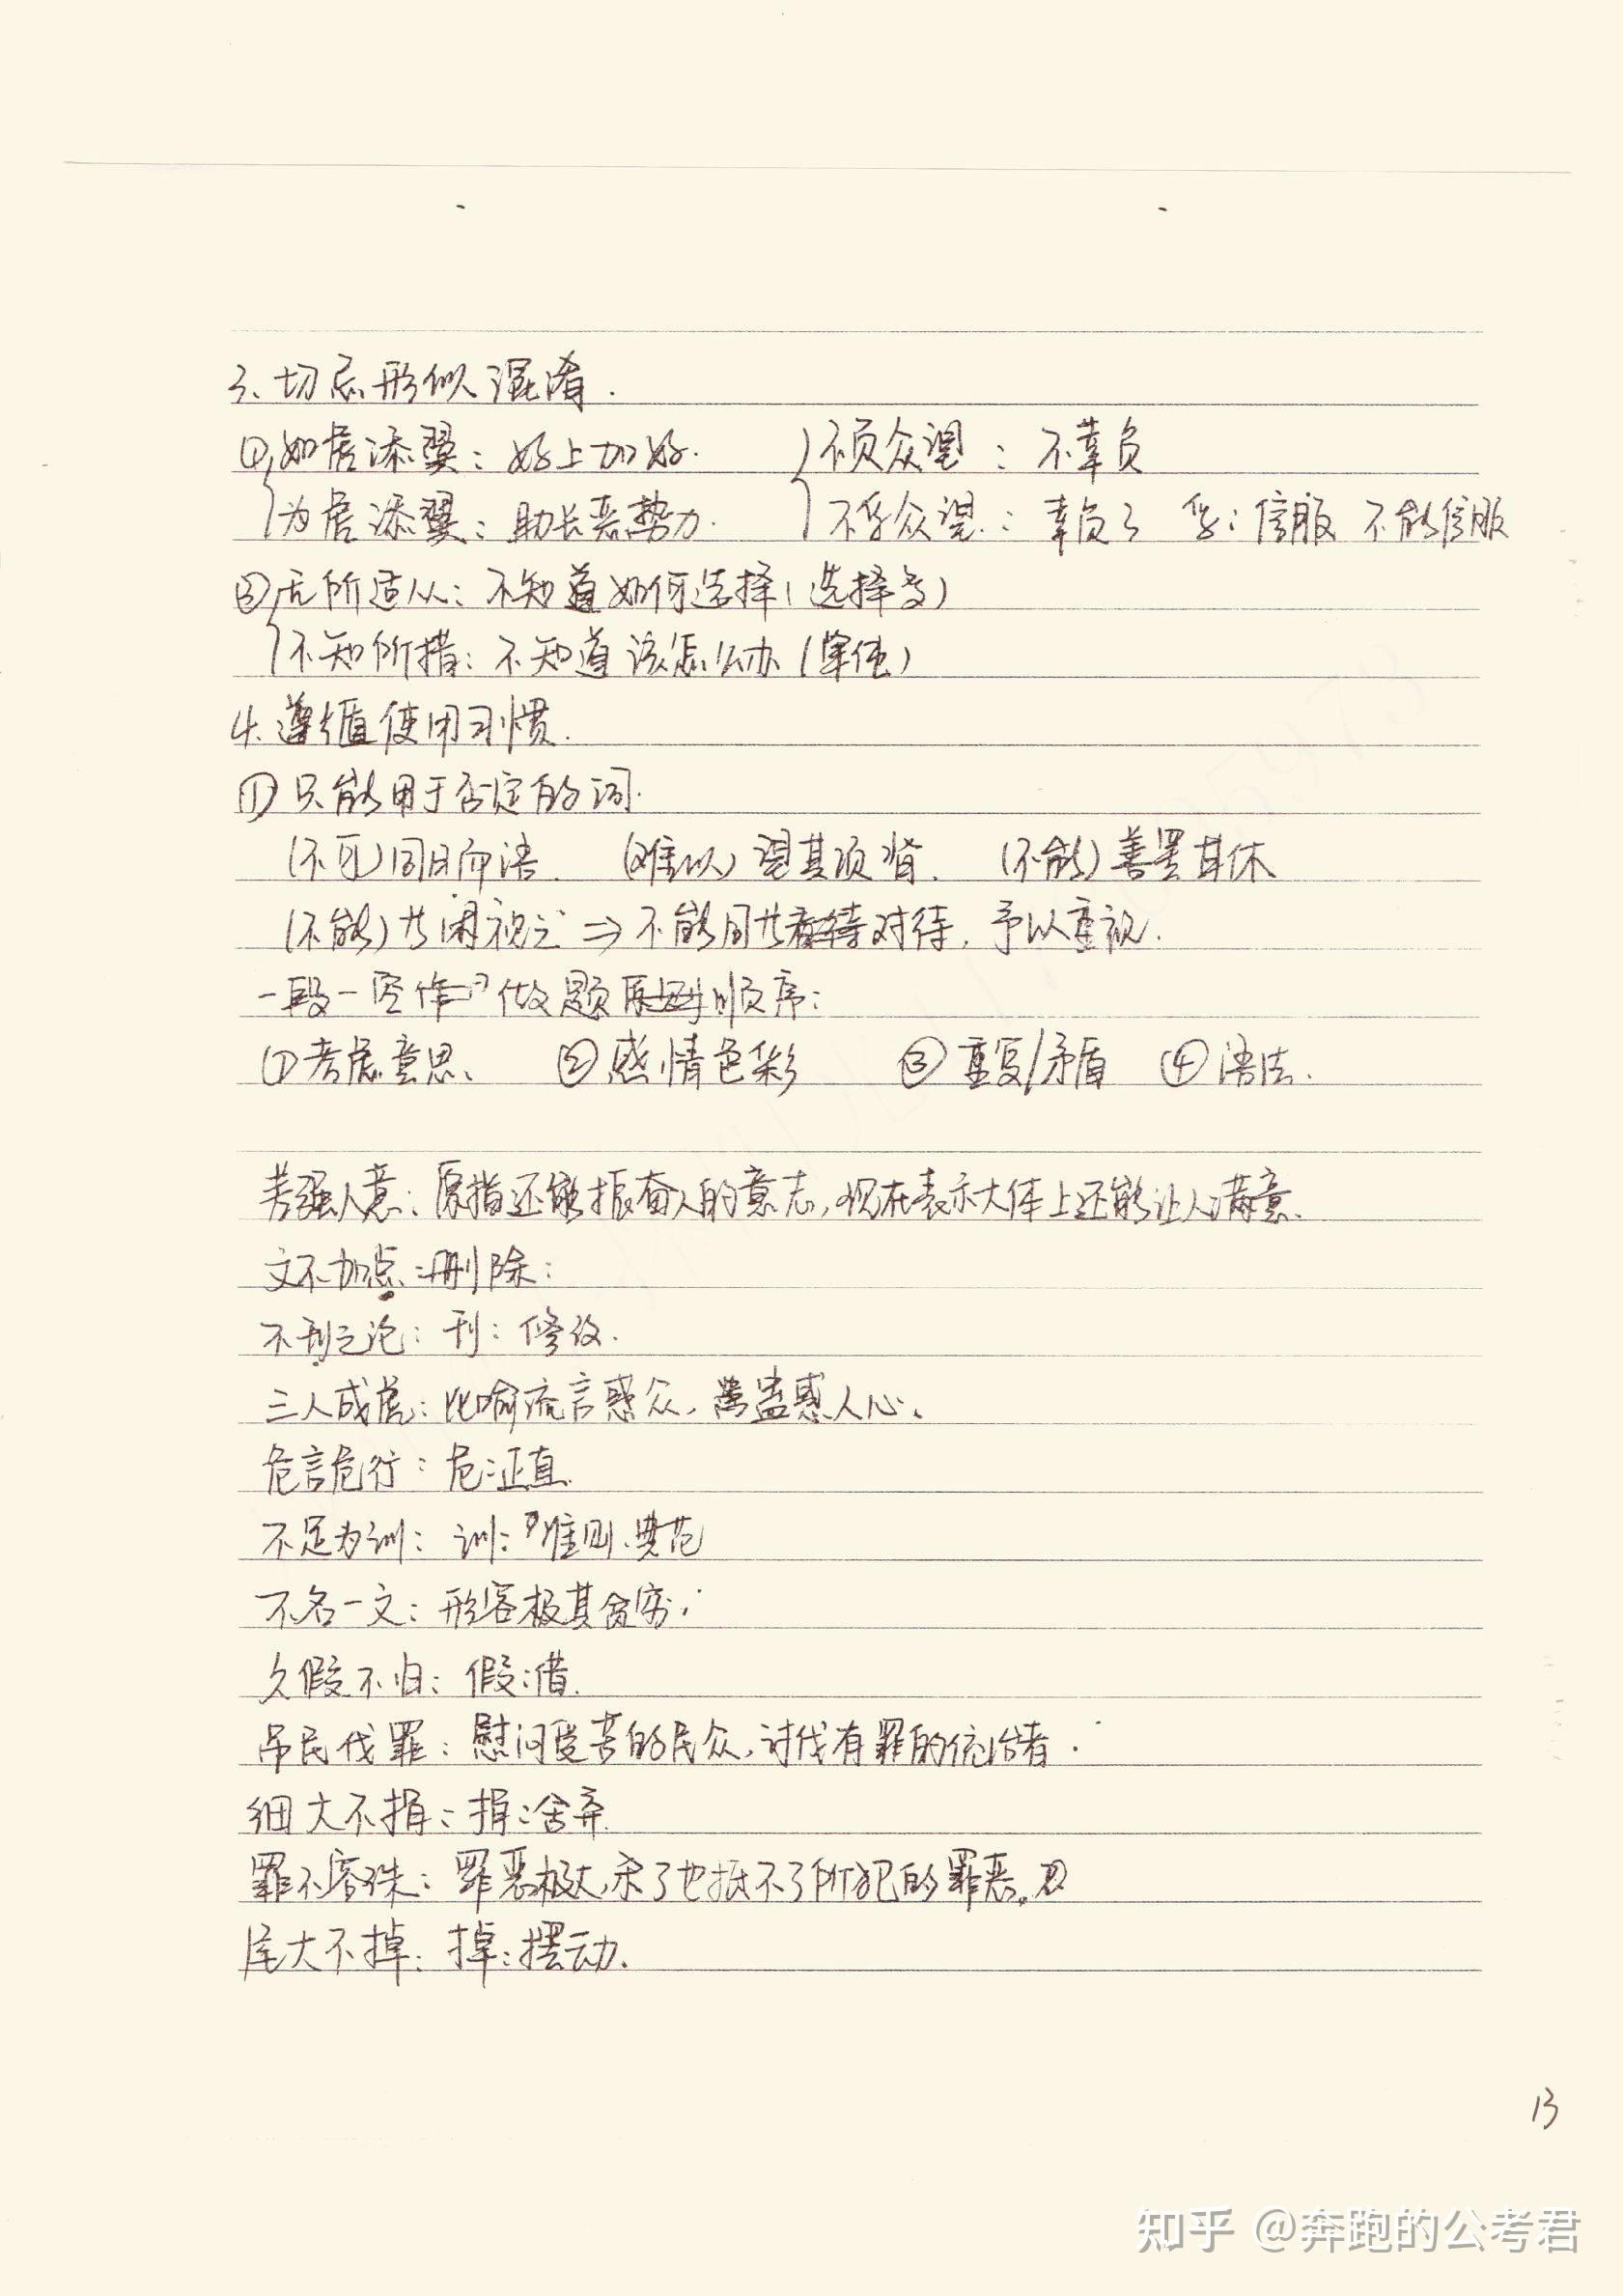 3、切忌形似混淆.
①如虎添翼：好上加好. 不负众望：不辜负
为虎添翼：助长恶势力. 不孚众望：辜负了 孚：信服 不能信服
②无所适从：不知道如何选择(选择多)
不知所措：不知道该怎么办(单纯)
4.遵循使用习惯.
①只能用于否定的词.
(不可)同日而语. (难以)望其项背. (不能)善罢甘休
(不能)等闲视之⇒不能同等对待, 予以重视.
一段一空 做题顺序：
①考虑意思、 ②感情色彩 ③重复/矛盾 ④语法.
差强人意：原指还能振奋人的意志,现在表示大体上还能让人满意.
文不加点：删除：
不刊之论：刊：修改.
三人成虎：比喻流言惑众,蛊惑人心.
危言危行：危：正直.
不足为训：训：准则、典范
不名一文：形容极其贫穷；
久假不归：假：借.
吊民伐罪：慰问受苦的民众,讨伐有罪的统治者.
细大不捐：捐：舍弃.
罪不容诛：罪恶极大,杀了也抵不了所犯的罪恶。
尾大不掉：掉：摆动.
13
知乎 @奔跑的公考君